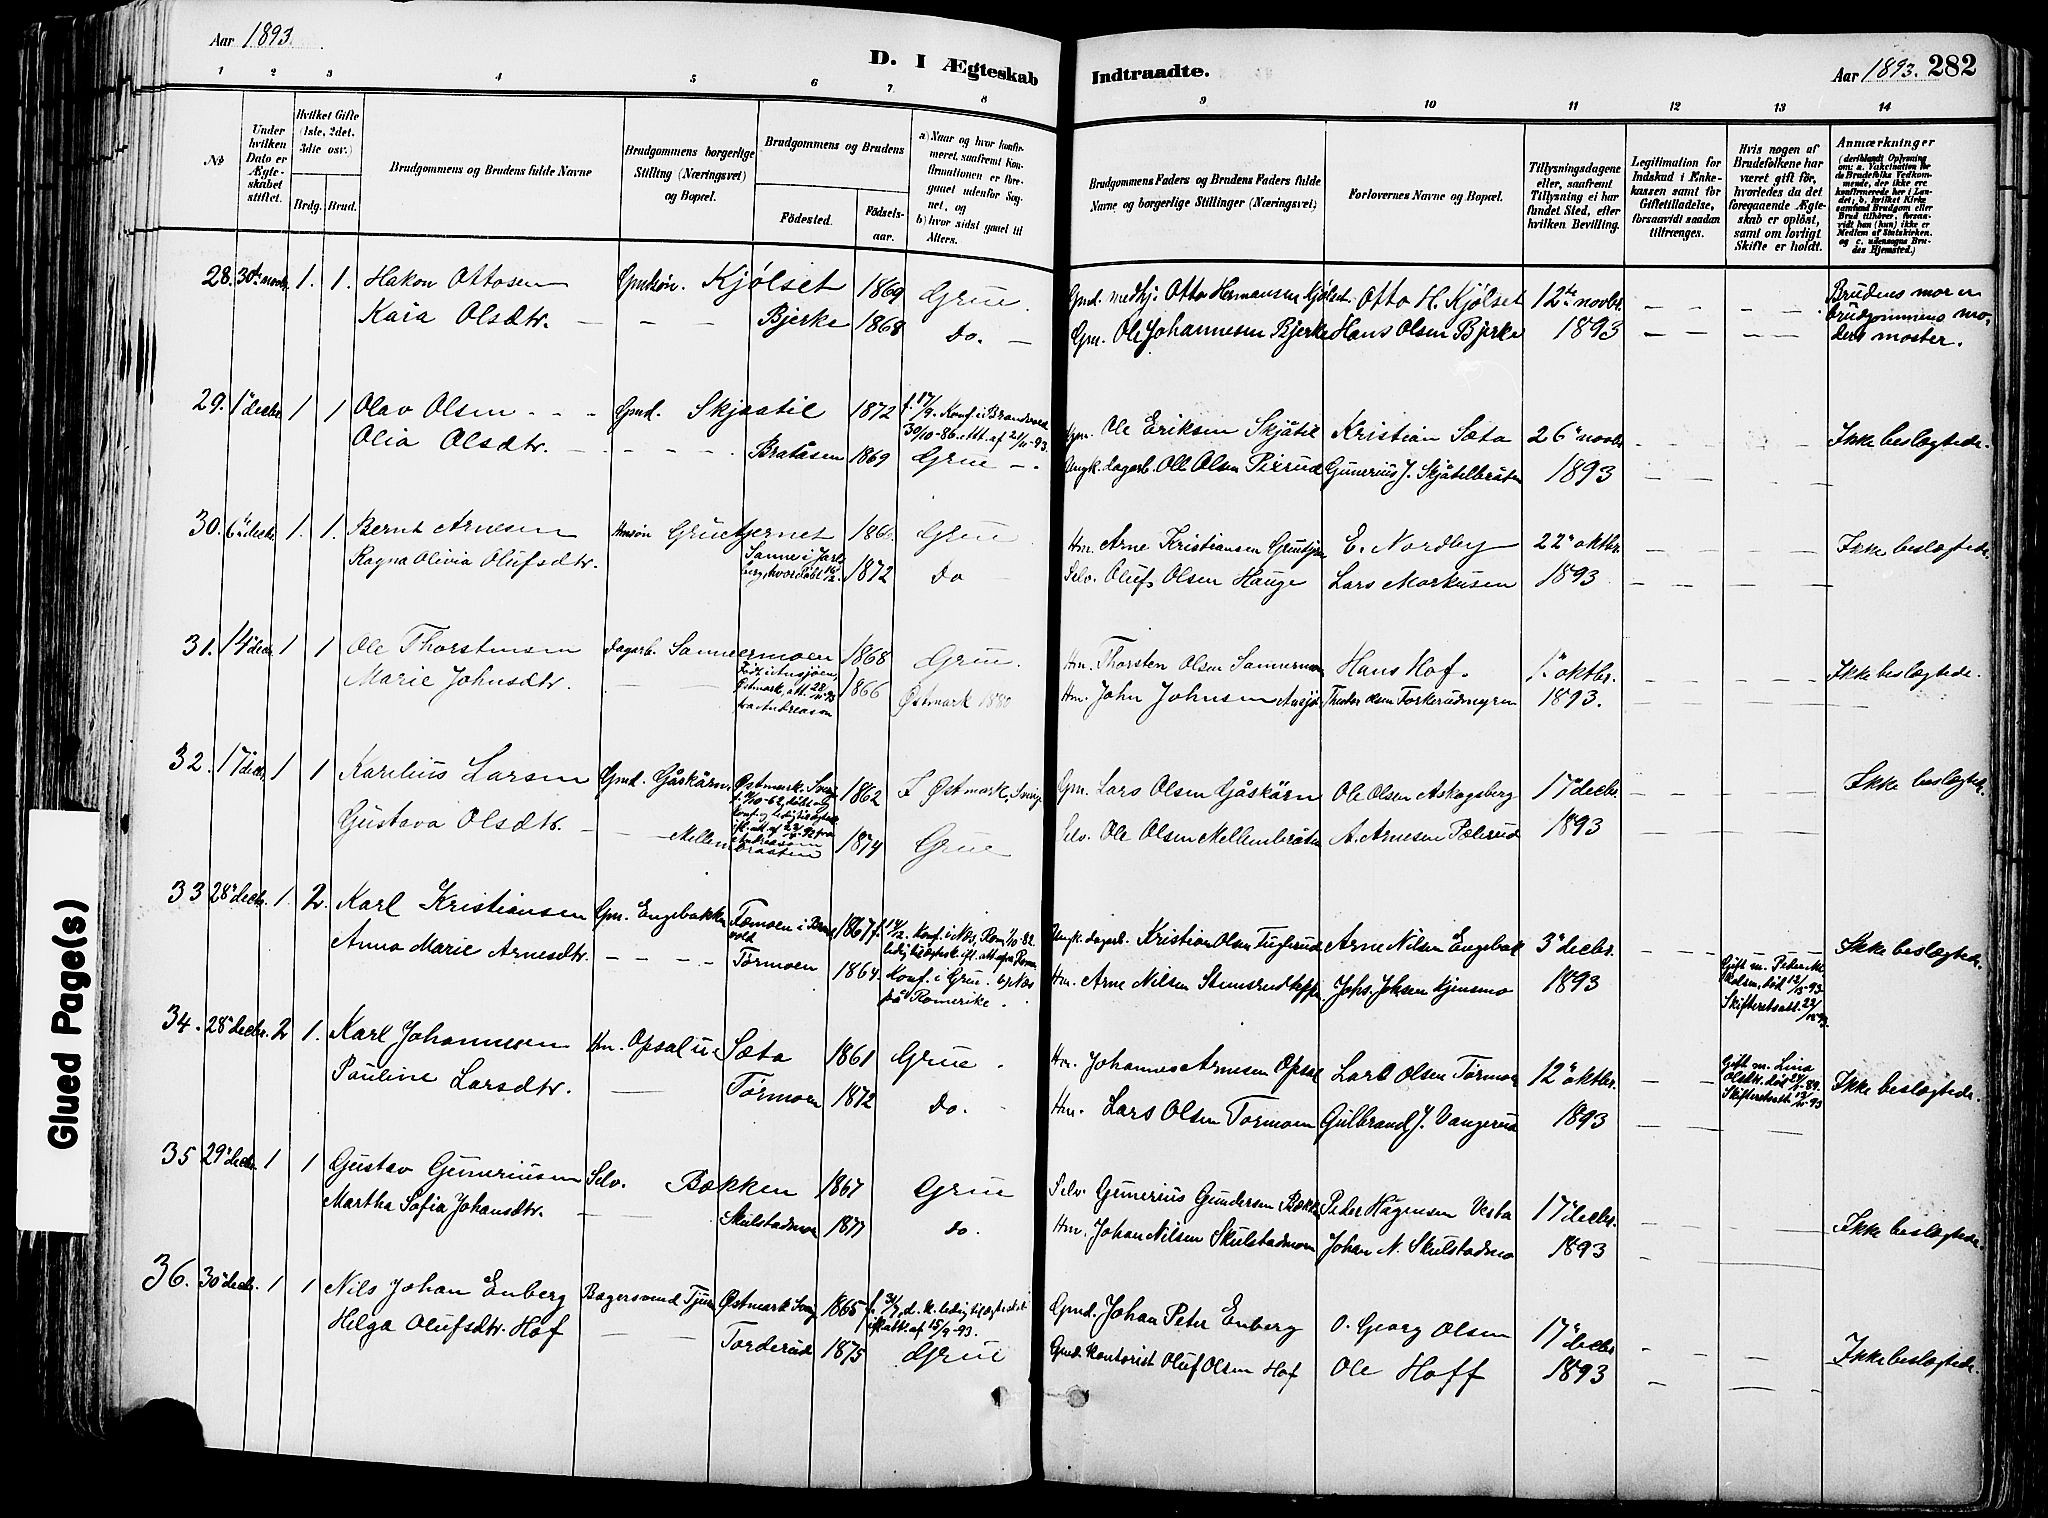 Aar 1893.
D. I Ægteskab Indtraadte.
Aar 1893. 282
1 2 3 4 5 6 7 8 9 10 11 12 13 14
No
Under hvilken Dato er Ægteskabet stiftet.
Hvilket Gifte (1ste, 2det, 3die osv.)
Brdg. Brud.
Brudgommens og Brudens fulde Navne
Brudgommens borgerlige Stilling (Næringsvei) og Bopæl.
Brudgommens og Brudens
Fødested.
Fødselsaar.
a) Naar og hvor konfirmeret, saafremt Konfirmationen er foregaaet udenfor Sognet, og
b) hvor sidst gaaet til Alters.
Brudgommens Faders og Brudens Faders fulde Navne og borgerlige Stillinger (Næringsvei)
Forlovernes Navne og Bopæl.
Tillysningsdagene eller, saafremt Tillysning ei har fundet Sted, efter hvilken Bevilling.
Legitimation for Indskud i Enkekassen samt for Giftetilladelse, forsaavidt saadan tiltrænges.
Hvis nogen af Brudefolkene har været gift før, hvorledes da det foregaaende Ægteskab er opløst, samt om lovligt Skifte er holdt.
Anmærkninger
(deriblandt Oplysning om: a. Vakcination for de Brudefolks Vedkommende, der ikke ere konfirmerede her i Landet; b. hvilket Kirkesamfund Brudgom eller Brud tilhører, forsaavidt han (hun) ikke er Medlem af Statskirken, og c. udensogns Brudes Hjemsted.)
28. 30te novbr. 1. 1. Hakon Ottosen Gmdsøn. Kjølset 1869 Grue Gmd. medhj. Otto Hermansen Kjølset Otto H. Kjølset 12te novbr. Brudens mor er
Kaia Olsdtr. Bjerke 1868 Do. Gm. Ole Johannesen Bjerke Hans Olsen Bjerke 1893 brudgommens moders moster.
29. 1ste decbr. 1 1 Olav Olsen Gmd. Skjaatil 1872 f. 17/9. Konf. i Brandvold 30/10-86. Att. af 21/11-93. Gm. Ole Eriksen Skjåtil Kristian Sæta 26 novbr. Ikke beslægtede.
Olia Olsdtr. Bratåsen 1869 Grue Ungk. dagarb. Ole Olsen Pixrud Gunerius J. Skjåtilbråten 1893
30. 6te decbr. 1. 1. Bernt Arnesen Hmsøn Gruetjernet 1866 Grue Hm. Arne Kristiansen Gruetjern E. Nordby 22 oktbr. Ikke beslægtede.
Ragna Olivia Olufsdtr. Sanne i Jarlsberg, hvor døbt 1872 Do Selv. Oluf Olsen Hauge Lars Markusen 1893
31. 14 decbr. 1 1 Ole Thorstensen dagarb. Sannermoen 1868 Grue. Hm. Thorsten Olsen Sannermoen Hans Hof. 1. oktbr. Ikke beslægtede.
Marie Johnsdtr. Østmark, att. fra Andreason 1866 Østmark 1880 Hm. John Johnsen Ausjø Theodor Olsen Torkerudmyren 1893.
32. 17 decbr. 1 1 Karelius Larsen Gmd. Gåskärn Østmark, Sverige 1862 I Østmark, Sverige Gm. Lars Olsen Gåskärn Ole Olsen Askogsberg 17 decbr. Ikke beslægtede.
Gustava Olsdtr. Mellembraaten 1874 Grue Selv. Ole Olsen Mellembråten A. Arnesen Pælerud 1893
33 28 decbr. 1. 2. Karl Kristiansen Gm. Engebakken Tæmoen i Brandvold 1867 f. 14/2. Konf. i Nes, Rom. 1/10 82. Ungk. dagarb. Kristian Olsen Fuglerud Arne Nilsen Engebak 3 decbr. Ikke beslægtede.
Anna Marie Arnesdtr. Tørmoen 1864. Konf. i Grue. b, Nes på Romerike. Hm. Arne Nilsen Stemsrud Johs. Johsen Kjensmo 1893 Gift m. Peder
34. 28 decbr. 2 1. Karl Johannesen Hm. Opsal u. Sæta 1861 Grue. Hm. Johannes Arnesen Opsal Lars Olsen Tørmoen 12 oktbr. Gift m. Lina Olsdtr. død Ikke beslægtede.
Pauline Larsdtr. Tørmoen 1872 Do. Hm. Lars Olsen Tormoen Gulbrand J. Vangerud 1893
35 29 decbr. 1 1 Gustav Guneriusen Selv. Bækken 1867 Grue Selv. Gunerius Gundersen Bækken Peder Hagensen Vesta 17 decbr.
Martha Sofia Johansdtr. Skulstadmoen 1871 do. Hm. Johan Nilsen Skulstadmoen Johan N. Skulstadmo 1893 Ikke beslægtede.
36. 30 decbr. 1 1 Nils Johan Enberg Bagersvend Tjura Østmark, Sverig 1865 f. 31/7, d. k. ledig til ægteskab ifl. att. af 15/9-93. Gmd. Johan Peter Enberg O. Georg Olsen 17 decbr.
Helga Olufsdtr. Hof Torderud 1875 Grue Gmd. Kontorist Oluf Olsen Hof Ole Hoff 1893 Ikke beslægtede.
Glued Page(s)